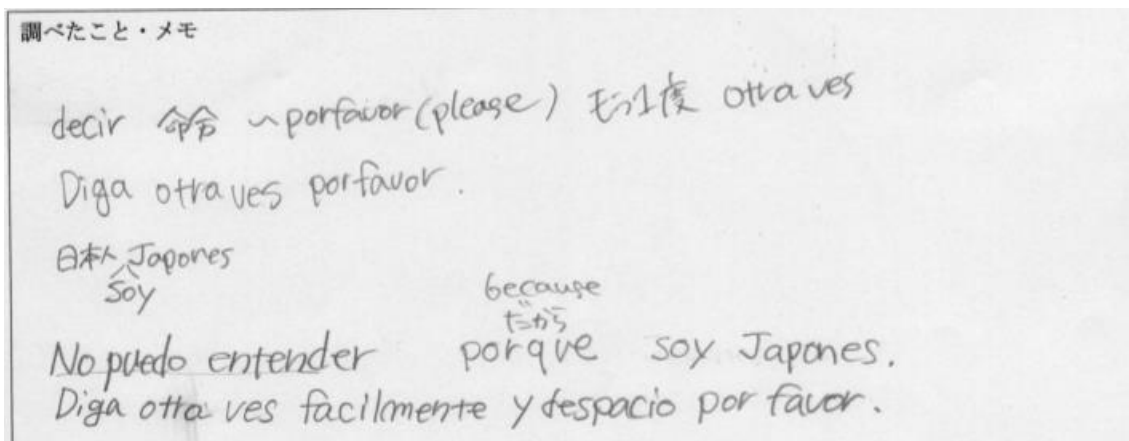 調べたこと・メモ
decir 命令 ~porfavor(please) もう1度 otra ves
Diga otra ves porfavor.
日本人 Japones
Soy
because
だから
No puedo entender porque soy Japones.
Diga otra ves facilmente y despacio por favor.